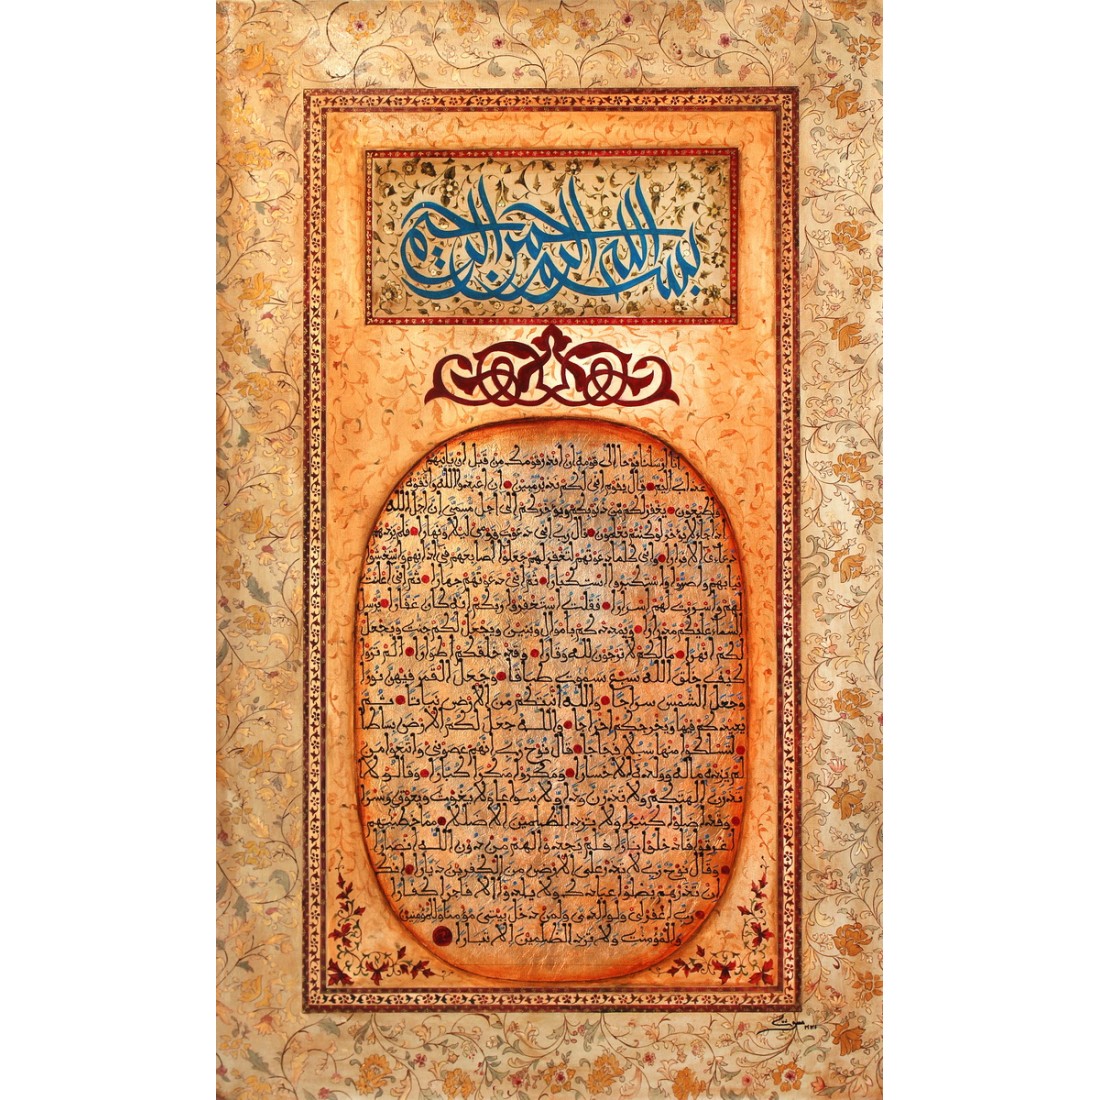 بسم الله الرحمن الرحيم
انا ارسلنا نوحا الى قومه ان انذر قومك من قبل ان ياتيهم
عذاب اليم ● قال يقوم اني لكم نذير مبين ● ان اعبدوا الله واتقوه
واطيعون ● يغفر لكم من ذنوبكم ويؤخركم الى اجل مسمى ان اجل الله
اذا جاء لا يؤخر لو كنتم تعلمون ● قال رب اني دعوت قومي ليلا ونهارا ● فلم يزدهم
دعاءي الا فرارا ● واني كلما دعوتهم لتغفر لهم جعلوا اصابعهم في اذانهم واستغشوا
ثيابهم واصروا واستكبروا استكبارا ● ثم اني دعوتهم جهارا ● ثم اني اعلنت
لهم واسررت لهم اسرارا ● فقلت استغفروا ربكم انه كان غفارا ● يرسل
السماء عليكم مدرارا ● ويمددكم باموال وبنين ويجعل لكم جنت ويجعل
لكم انهرا ● مالكم لا ترجون لله وقارا ● وقد خلقكم اطوارا ● الم تروا
كيف خلق الله سبع سموت طباقا ● وجعل القمر فيهن نورا
وجعل الشمس سراجا ● والله انبتكم من الارض نباتا ● ثم
يعيدكم فيها ويخرجكم اخراجا ● والله جعل لكم الارض بساطا
لتسلكوا منها سبلا فجاجا ● قال نوح رب انهم عصوني واتبعوا من
لم يزده ماله وولده الا خسارا ● ومكروا مكرا كبارا ● وقالوا لا
تذرن الهتكم ولا تذرن ودا ولا سواعا ولا يغوث ويعوق ونسرا
وقد اضلوا كثيرا ولا تزد الظلمين الا ضللا ● مما خطيتهم
اغرقوا فادخلوا نارا ● فلم يجدوا لهم من دون الله انصارا
● وقال نوح رب لا تذر على الارض من الكفرين ديارا ● انك
ان تذرهم يضلوا عبادك ولا يلدوا الا فاجرا كفارا
● رب اغفر لي ولوالدي ولمن دخل بيتي مؤمنا وللمؤمنين
والمؤمنت ولا تزد الظلمين الا تبارا ●